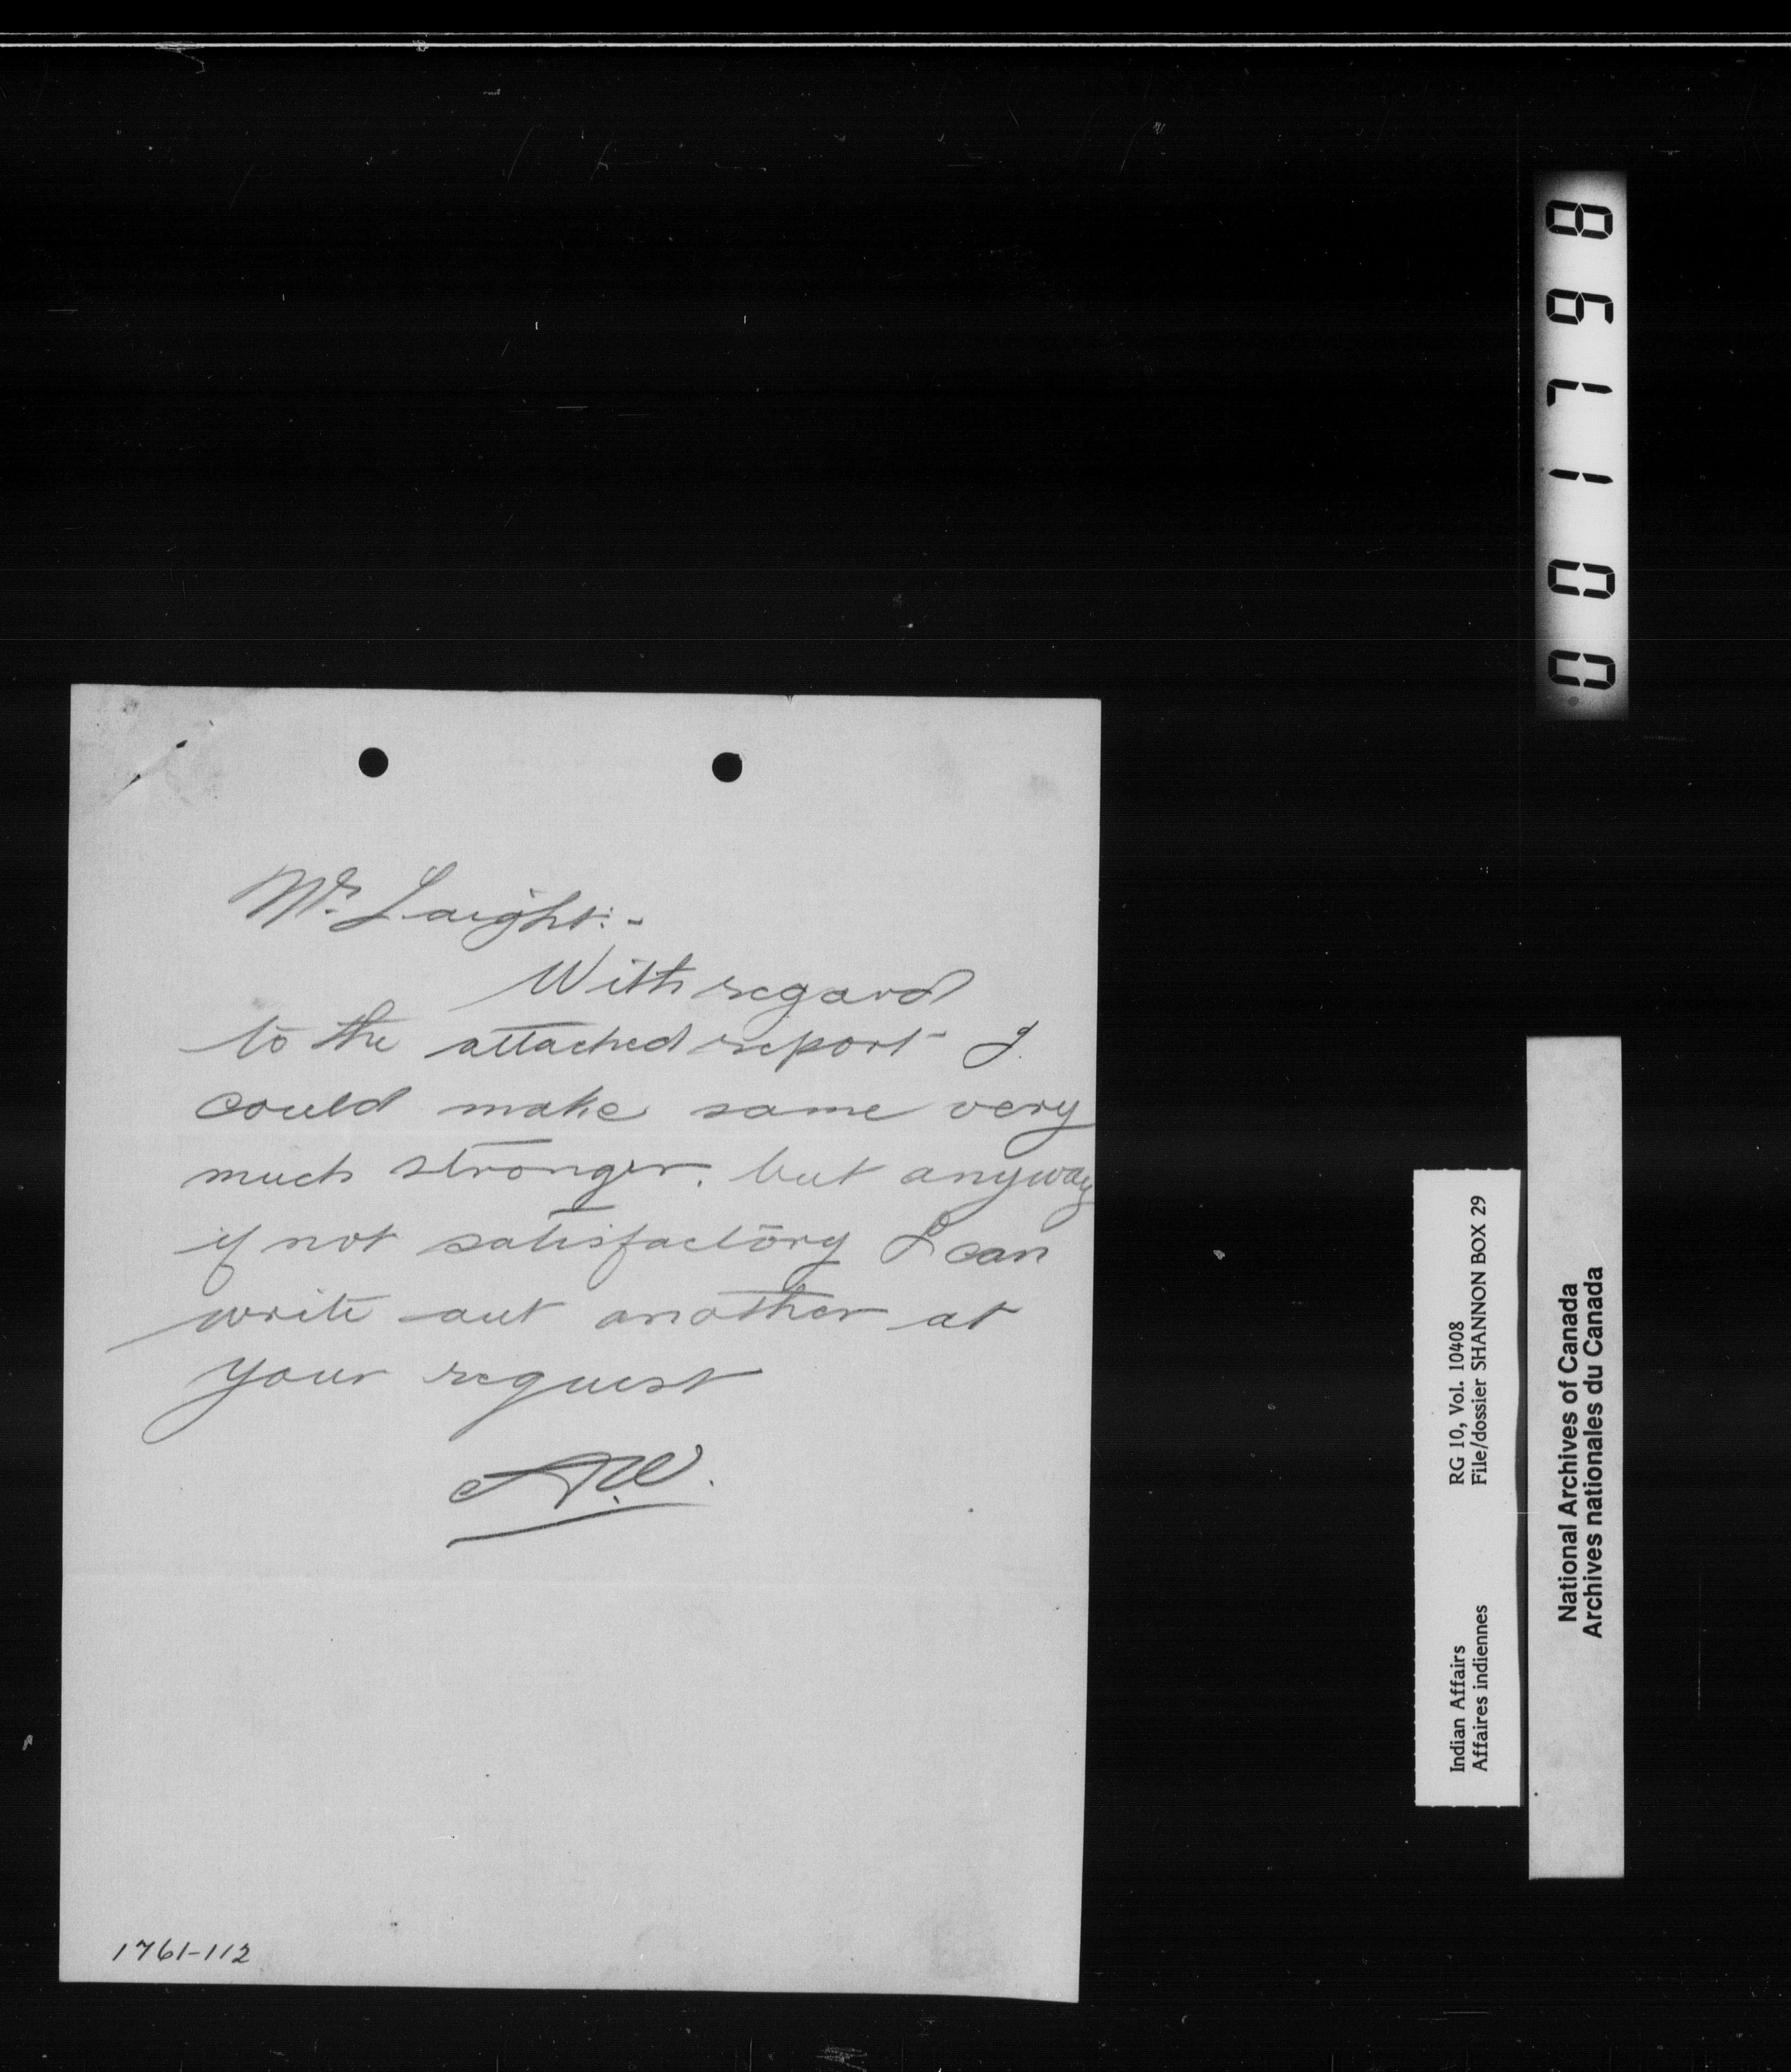 Mr. Laight:-
With regard
to the attached report I
could make same very
much stronger, but anyway
if not satisfactory I can
write out another at
your request
A.W.
1761-112
001768
RG 10, Vol. 10408
File/dossier SHANNON BOX 29
Indian Affairs
Affaires indiennes
National Archives of Canada
Archives nationales du Canada